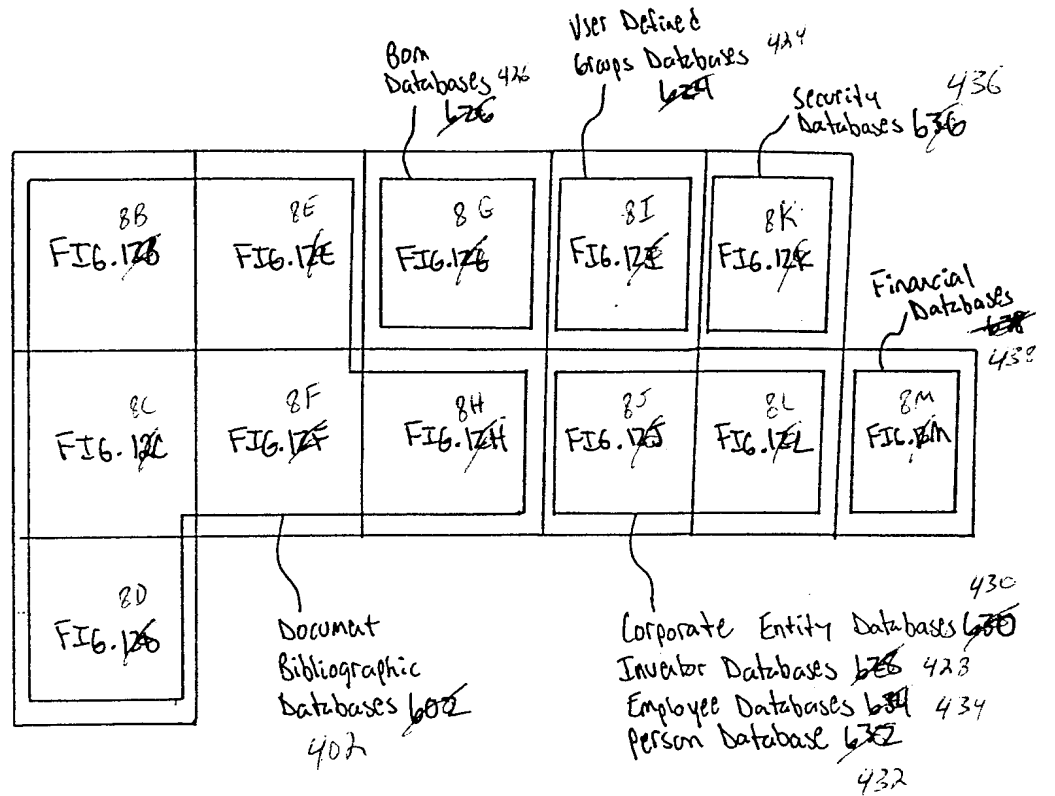 Bom
Databases 426
626
User Defined
Groups Databases 424
624
436
Security
Databases 636
8B
FIG. 12B
8E
FIG. 12E
8G
FIG. 12G
8I
FIG. 12I
8K
FIG. 12K
Financial
Databases
638
438
8C
FIG. 12C
8F
FIG. 12F
8H
FIG. 12H
8J
FIG. 12J
8L
FIG. 12L
8M
FIG. 12M
8D
FIG. 12D
Document
Bibliographic
Databases 602
402
430
Corporate Entity Databases 630
Inventor Databases 628 428
Employee Databases 634 434
Person Database 632
432